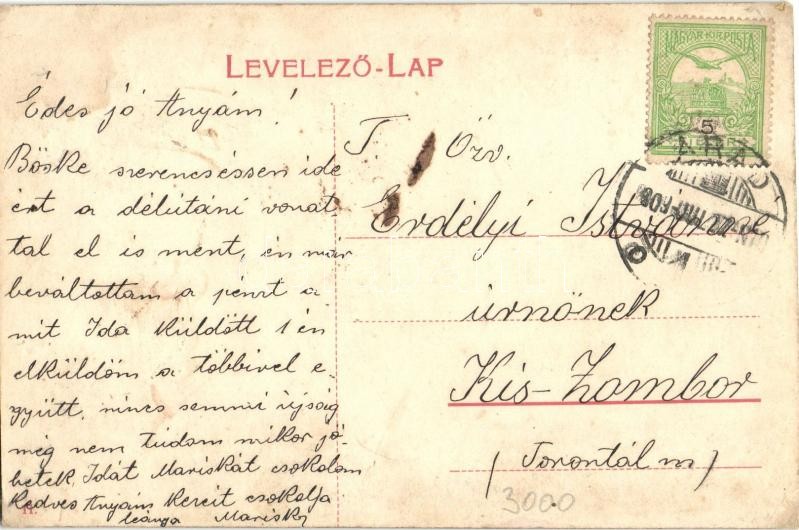 LEVELEZŐ-LAP
MAGYAR·KIR·POSTA
5
ARAD
Édes jó Anyám!
Böske szerencséssen ide
ért a délutáni vonat
tal el is ment, én már
beváltottam a pénzt a
mit Ida küldött 1 én
elküldöm a többivel e-
gyütt, nincs semmi ujság
még nem tudom mikor jö-
hetek, Idát Mariskát csokolom
Kedves Anyám kezeit csokolja
leánya Mariska
T. Özv.
Erdélyi Istvánne
úrnőnek
Kis-Zombor
(Torontál m)
3000